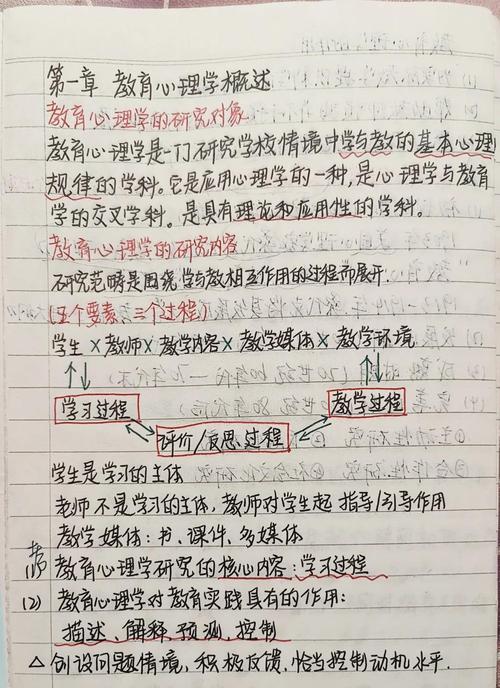 第一章 教育心理学概述
教育心理学的研究对象
教育心理学是一门研究学校情境中学与教的基本心理
规律的学科。它是应用心理学的一种,是心理学与教育
学的交叉学科。是具有理论和应用性的学科。
教育心理学的研究内容
研究范畴是围绕学与教相互作用的过程而展开.
(五个要素、三个过程)
学生×教师×教学内容×教学媒体×教学环境
学习过程
教学过程
评价/反思过程
学生是学习的主体
老师不是学习的主体,教师对学生起指导/引导作用
教学媒体:书、课件、多媒体
教育心理学研究的核心内容:学习过程
(2) 教育心理学对教育实践具有的作用:
描述、解释、预测、控制
△ 创设问题情境,积极反馈,恰当控制动机水平.